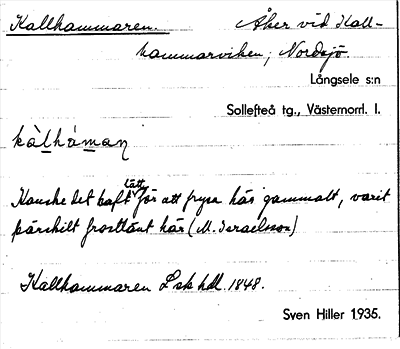 Kallhammaren.
Åker vid Kall-
hammarviken; Nordsjö
Långsele s:n
Sollefteå tg., Västernorrl. l.
kàlhámaṇ
Kanske det haft lätt för att frysa här gammalt, varit
särskilt frostlänt här (M. Israelsson)
Kallhammaren L sk hdl. 1848.
Sven Hiller 1935.